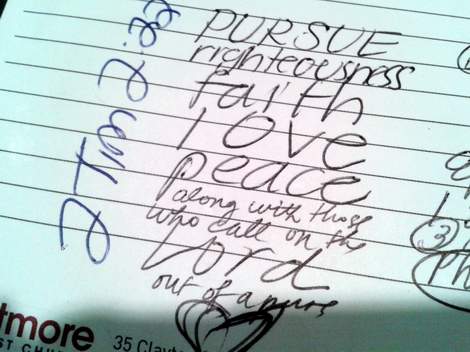 2 Tim 2:22
PURSUE
righteousness
faith
love
peace
along with those
who call on the
Lord
out of a pure
3
tmore
35 Clayt